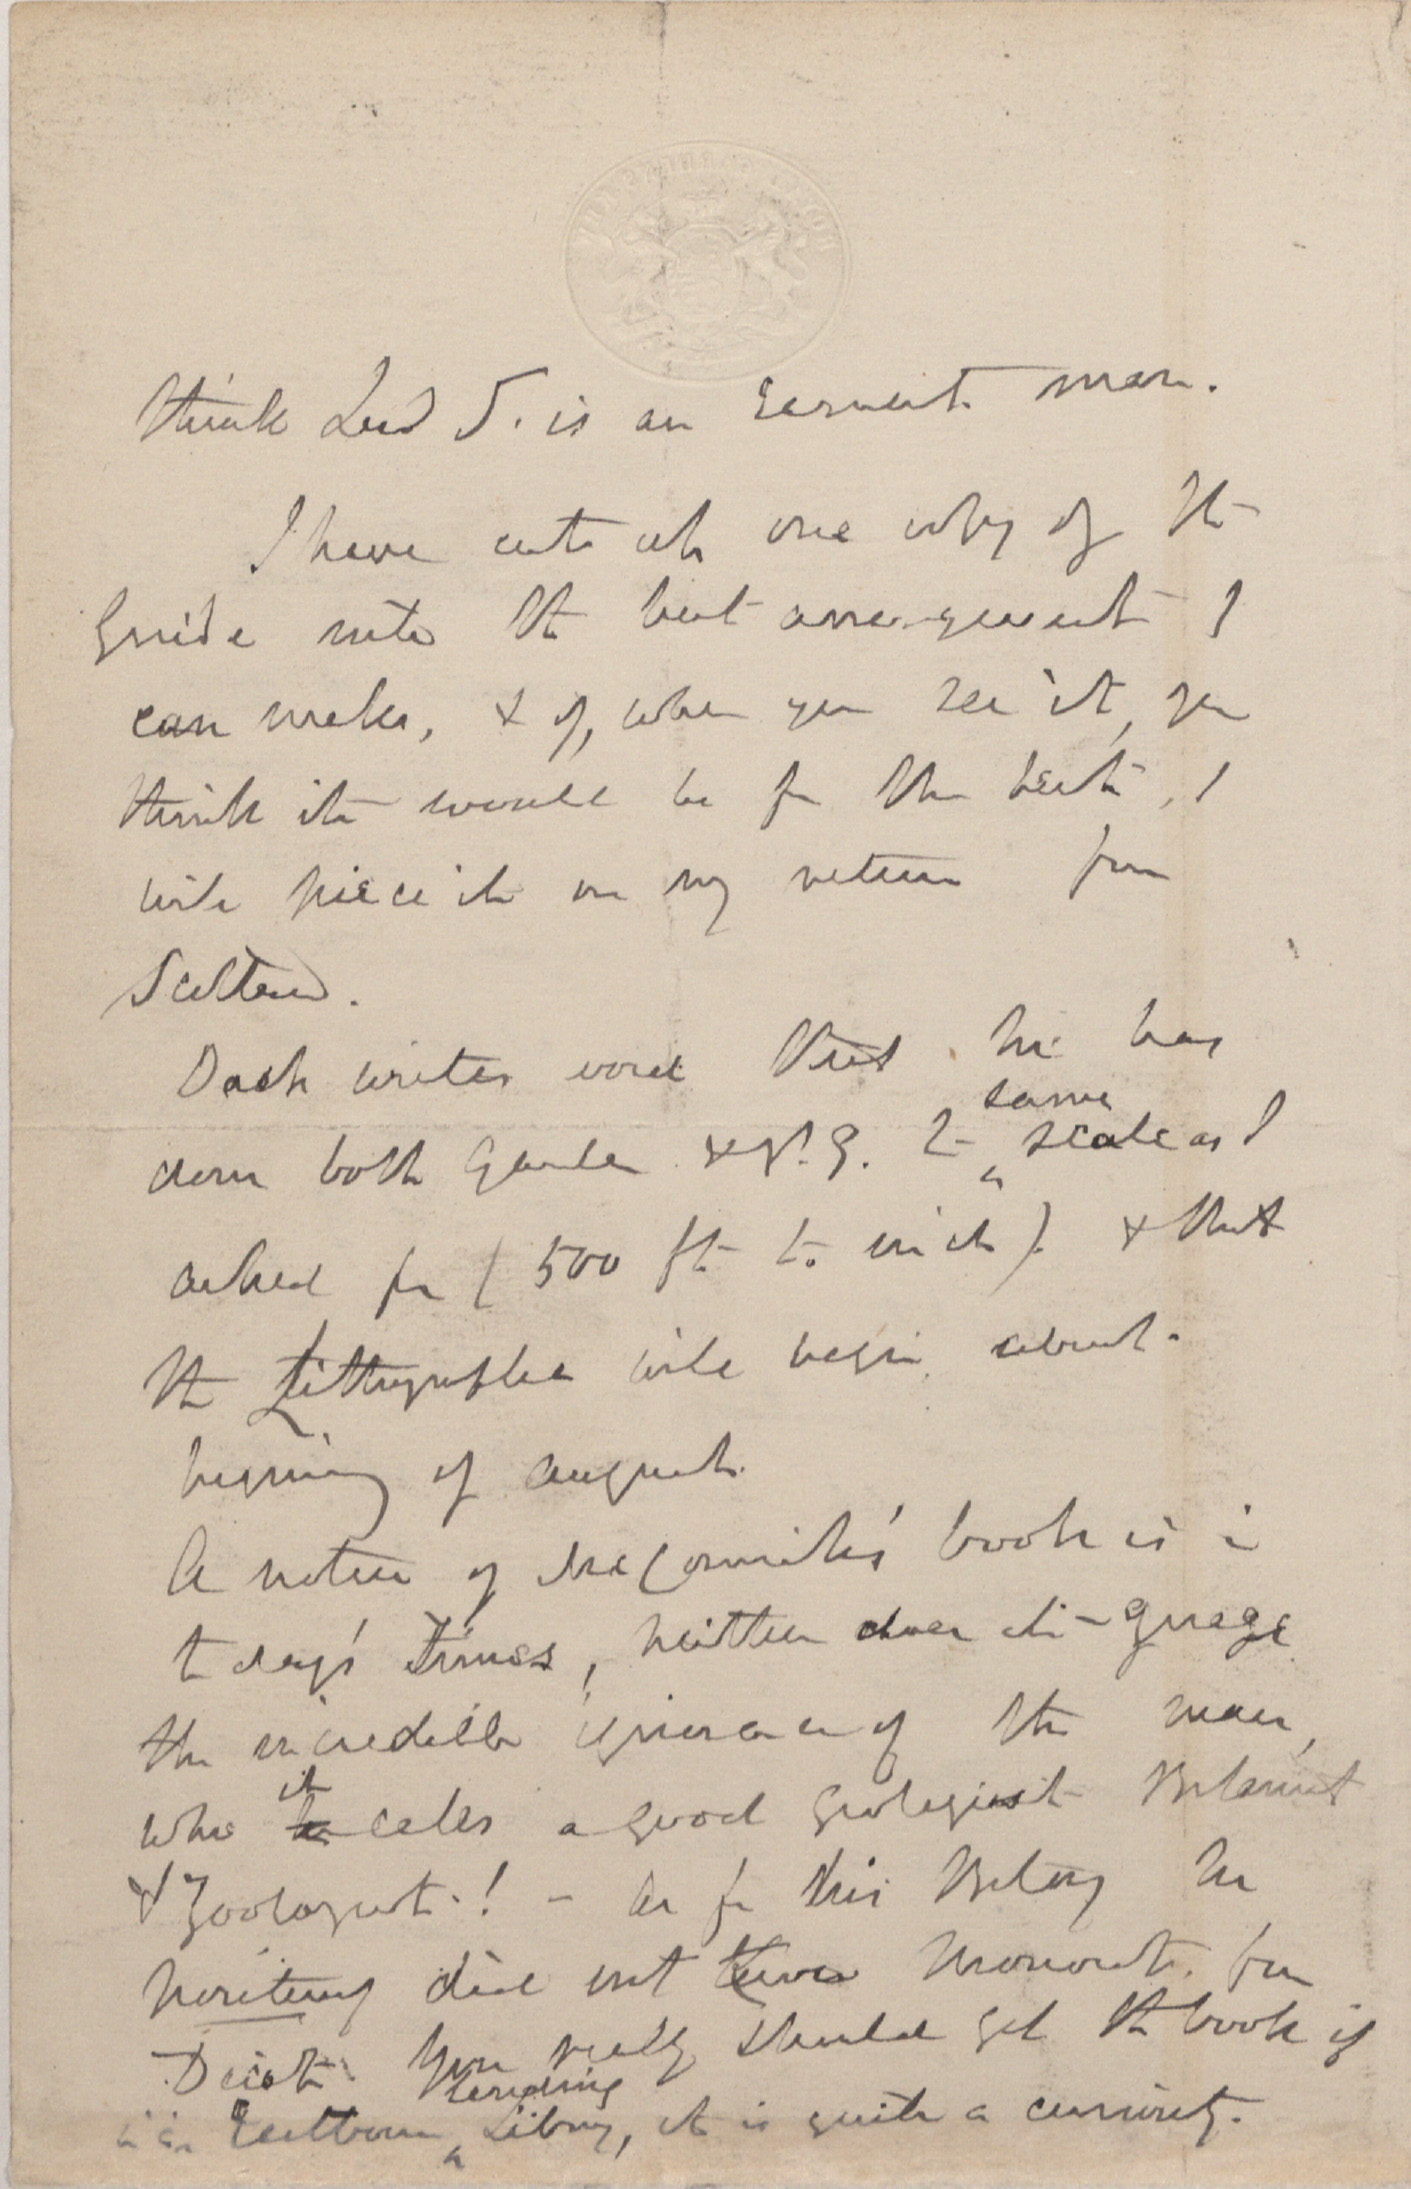 think Lord S. is an earnest man.
I have cut up one copy of the
Guide into the best arrangement I
can make, & if, when you see it, you
think it would be for the best, I
will piece it on my return from
Scotland.
writes word that he has
done both Garden & P. G. to same scale as I
asked for (500 ft to inch) & that
the Lithographer will begin about
begining of August.
A notice of McCormick's book is in
todays Times, neither does it gauge
the incredible ignorance of the man,
who it calls a good geologist Botanist
& Zoologist! — As for this Botany he
positively did not know Monocot. from
Dicot. You really should get the book if
in Eastbourne lending Library, it is quite a curiosity.